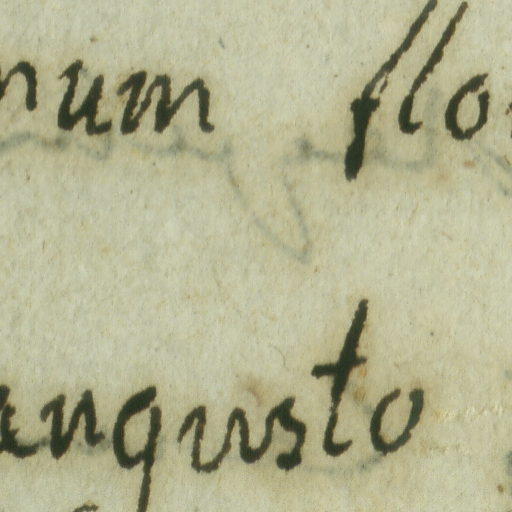 num flo
angusto